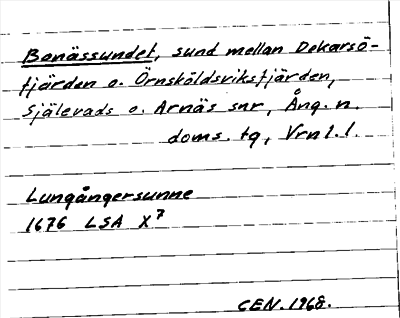 Bonässundet, sund mellan Dekarsö-
fjärden o. Örnsköldsviksfjärden,
Själevads o. Arnäs snr, Ång. n.
doms. tg, Vrnl. l.
Lungångersunne
1676 LSA X7
CEN. 1968.